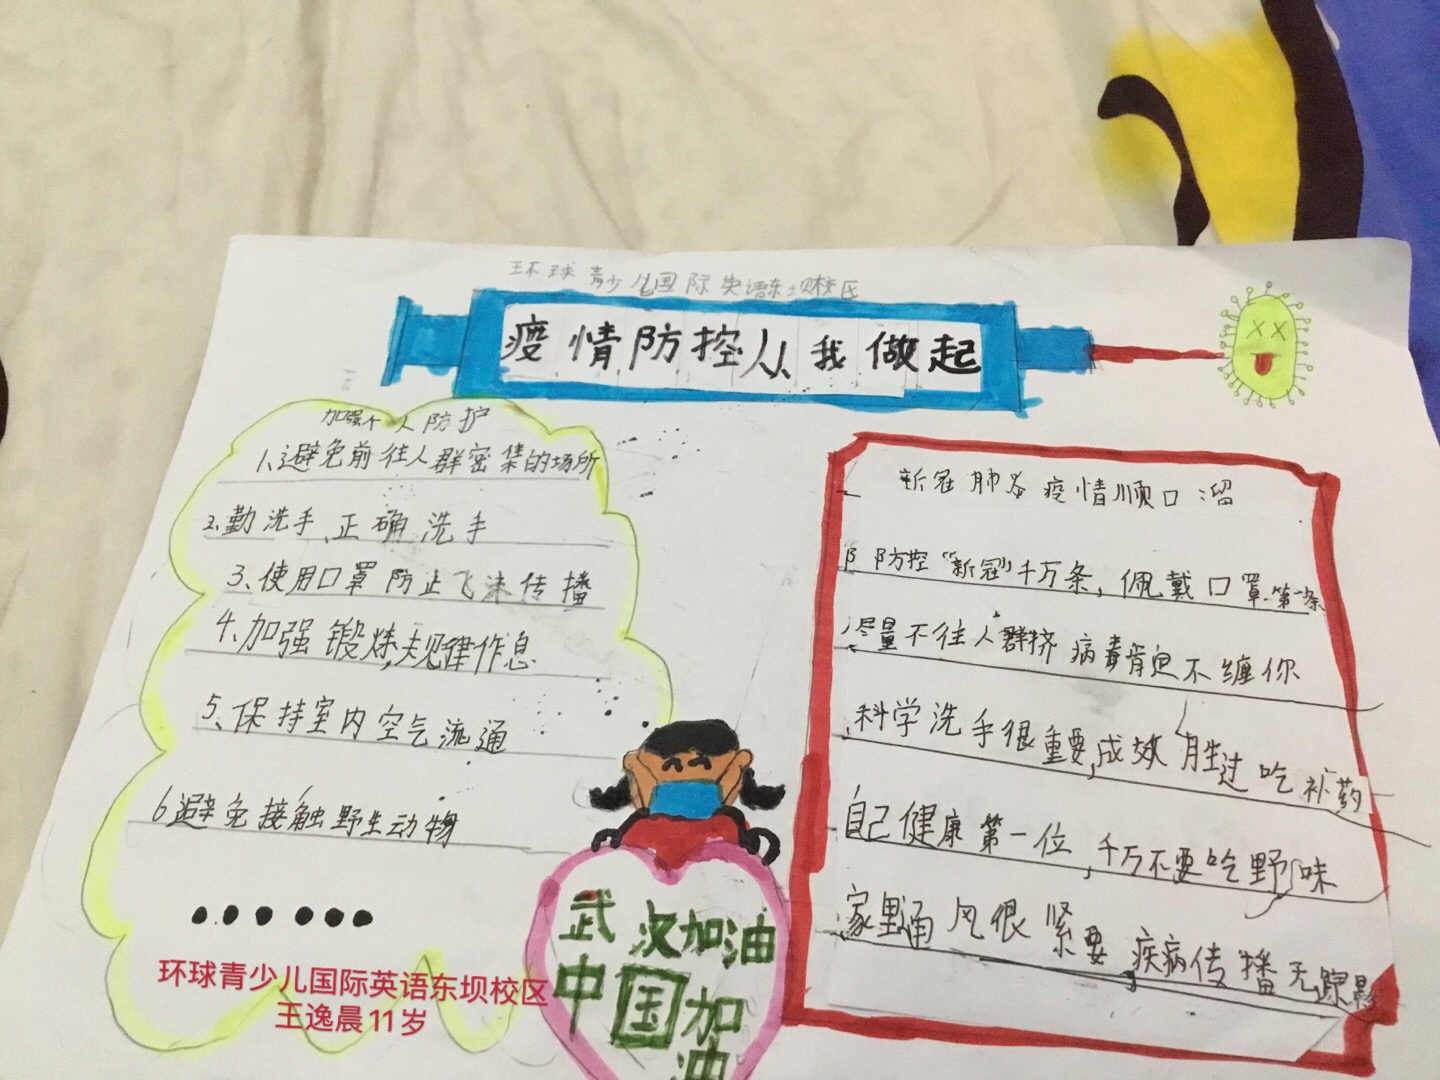 环球青少儿国际英语东坝校区
疫情防控从我做起
加强个人防护
1、避免前往人群密集的场所
2、勤洗手、正确洗手
3、使用口罩防止飞沫传播
4、加强锻炼,规律作息
5、保持室内空气流通
6避免接触野生动物
......
新冠肺炎疫情顺口溜
防控“新冠”千万条,佩戴口罩第一条
尽量不往人群挤 病毒肯定不缠你
科学洗手很重要,成效胜过吃补药
自己健康第一位,千万不要吃野味
家里通风很紧要,疾病传播无踪影
武汉加油
中国加
油
环球青少儿国际英语东坝校区
王逸晨11岁